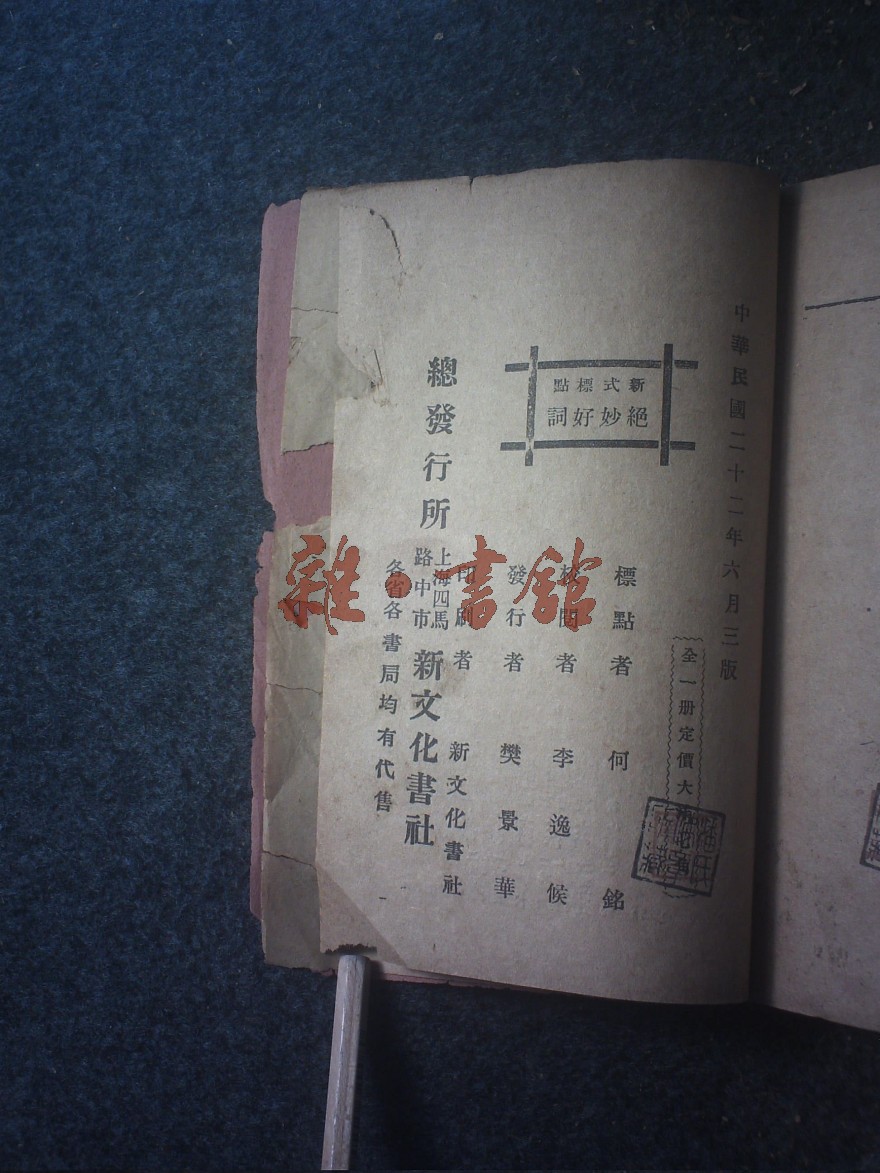 中華民國二十二年六月三版
全一册定價大
新式標點
絕妙好詞
標點者　何銘
校閱者　李逸候
發行者　樊景華
印刷者　新文化書社
總發行所　上海四馬路中市　新文化書社
各省各書局均有代售
雜·書館